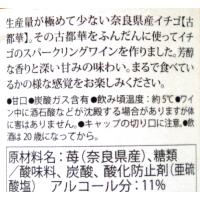 生産量が極めて少ない奈良県産イチゴ【古
都華】、その古都華をふんだんに使ってイチ
ゴのスパークリングワインを作りました。芳醇
な香りと深い甘みの味わい。まるで食べている
かの様な感覚をお楽しみください。
●甘口●炭酸ガス含有●飲み頃温度:約5℃●ワイ
ン中に酒石酸などが沈殿する場合がありますが体
に害はありません。●キャップの切り口に注意●飲
酒は20歳になってから。
原材料名:苺(奈良県産)、糖類
/酸味料、炭酸、酸化防止剤(亜硫
酸塩) アルコール分:11%